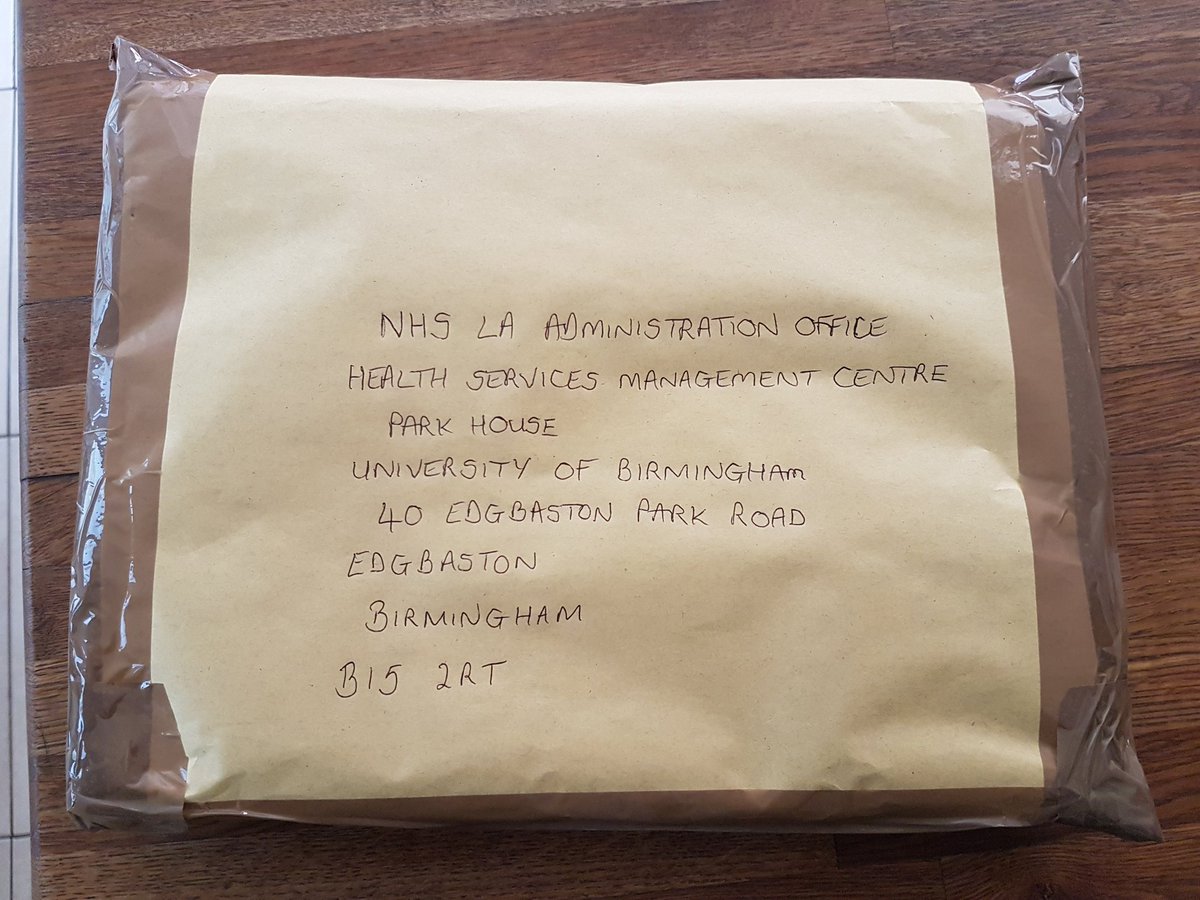 NHS LA ADMINISTRATION OFFICE
HEALTH SERVICES MANAGEMENT CENTRE
PARK HOUSE
UNIVERSITY OF BIRMINGHAM
40 EDGBASTON PARK ROAD
EDGBASTON
BIRMINGHAM
B15 2RT